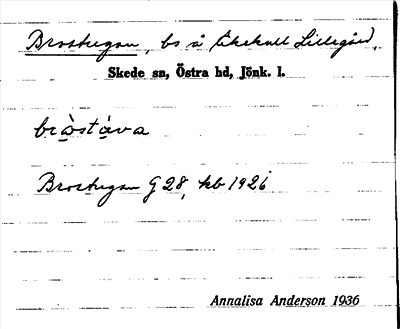 Brostugan, bs å Ekekull Lillegård,
Skede sn, Östra hd, Jönk. l.
bròstáva
Brostugan G 28, kb 1926
Annalisa Anderson 1936